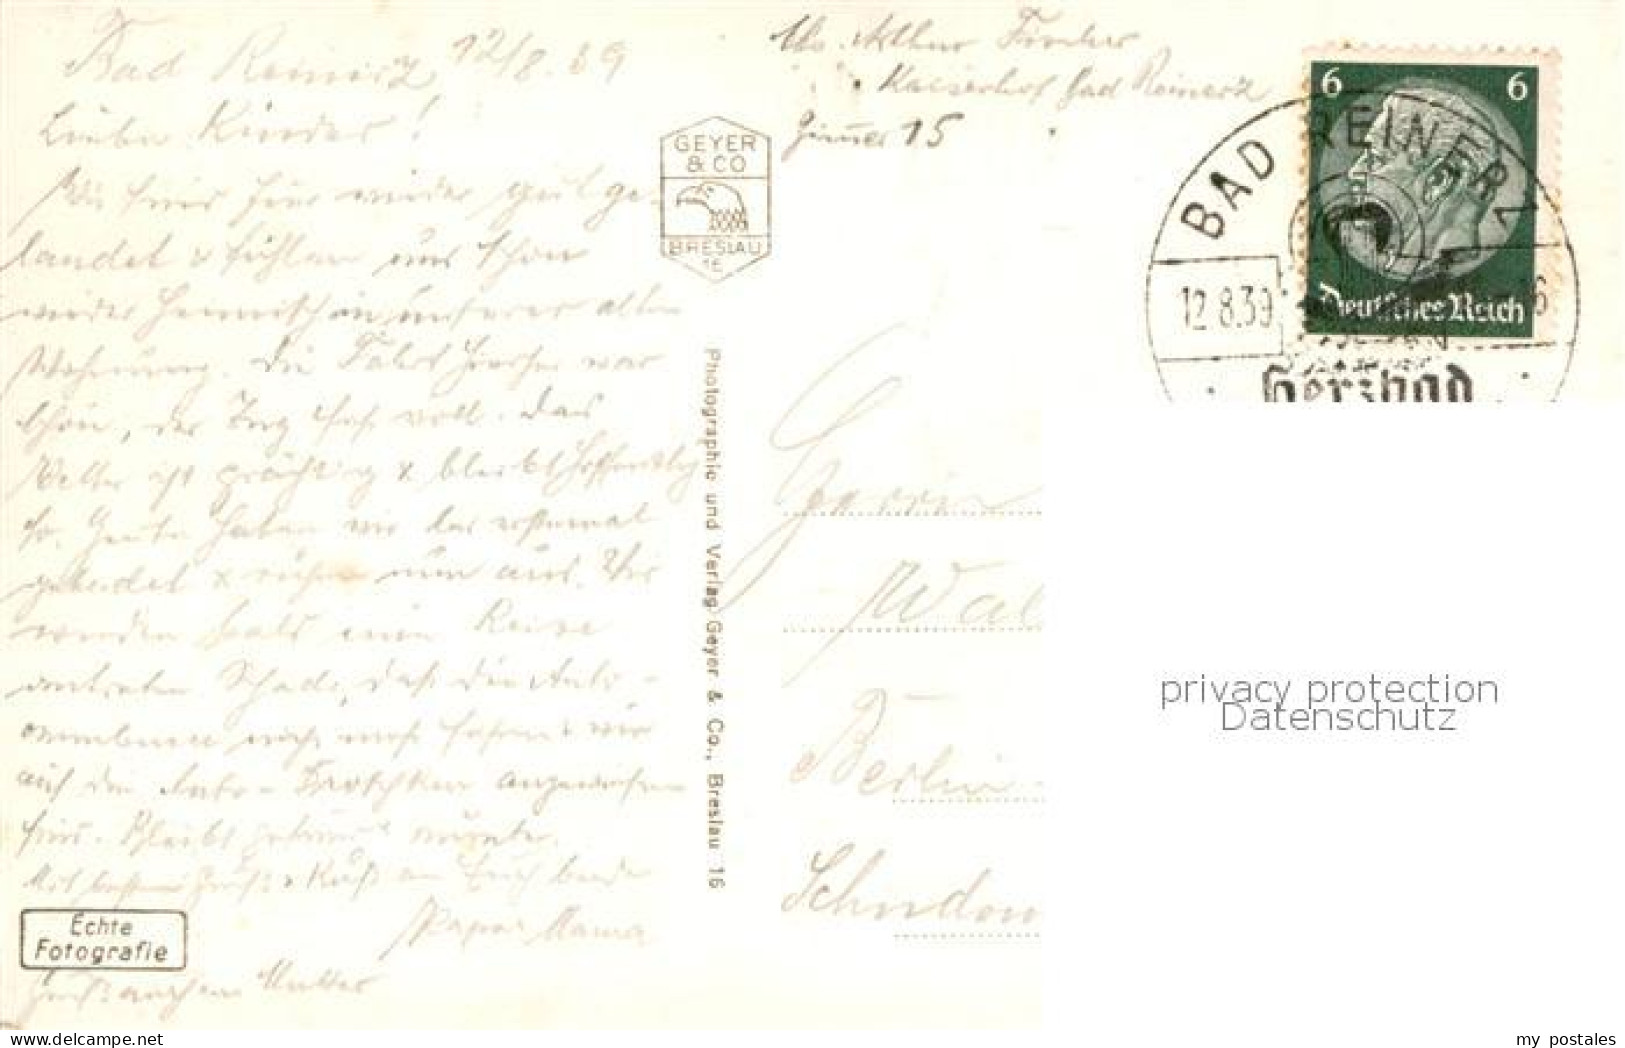 Bad Reinerz 12/8.39
Liebe Kinder!
Wir sind hier wieder gut ge-
landet & fühlen uns schon
wieder heimisch in unserer alten
Wohnung. Die Fahrt hierher war
schön, der Zug sehr voll. Das
Wetter ist prächtig & bleibt hoffentlich
so. Heute haben wir das erstemal
gebadet & ruhen nun aus. Wir
werden bald eine Reise
antreten Schade, daß die Auto-
omnibusse nicht mehr fahren & wir
auf die Auto-Droschken angewiesen
sind. Bleibt gesund & munter.
Mit besten Gruß & Kuß an Euch beide
Papa & Mama
Gruß auch an Mutter
Echte
Fotografie
GEYER
& CO
BRESLAU
16
Photographie und Verlag Geyer & Co., Breslau 16
Abs. Arthur
Kaiserhof Bad Reinerz
Zimmer 15
6 6
Deutsches Reich
BAD REINERZ
12.8.39
Herzbad
Wal
Berlin-
Schudow
privacy protection
Datenschutz
my postales
www.delcampe.net